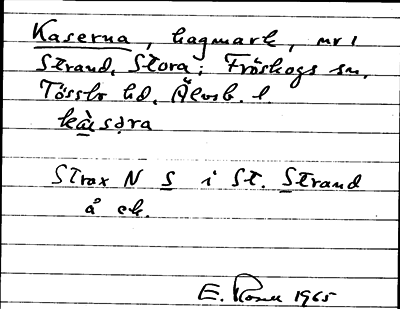 Kaserna, hagmark, nr 1
Strand, Stora; Fröskogs sn,
Tössbo hd, Älvsb. l.
kàsạra
Strax N S i St. Strand
å ek.
E. Rosell 1965